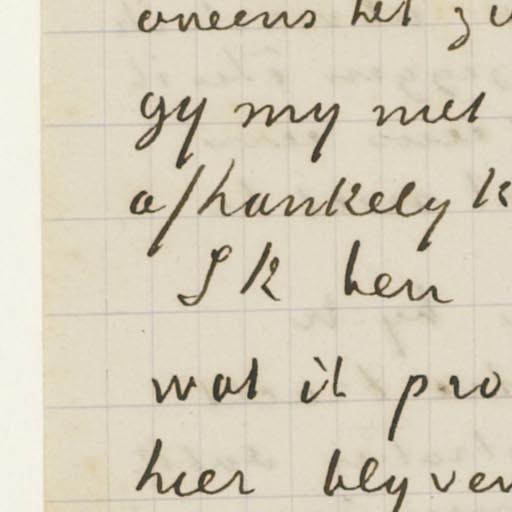 oneens het zi
gy my niet
afhankelyk
Ik ben
wat ik pro
hier blyven